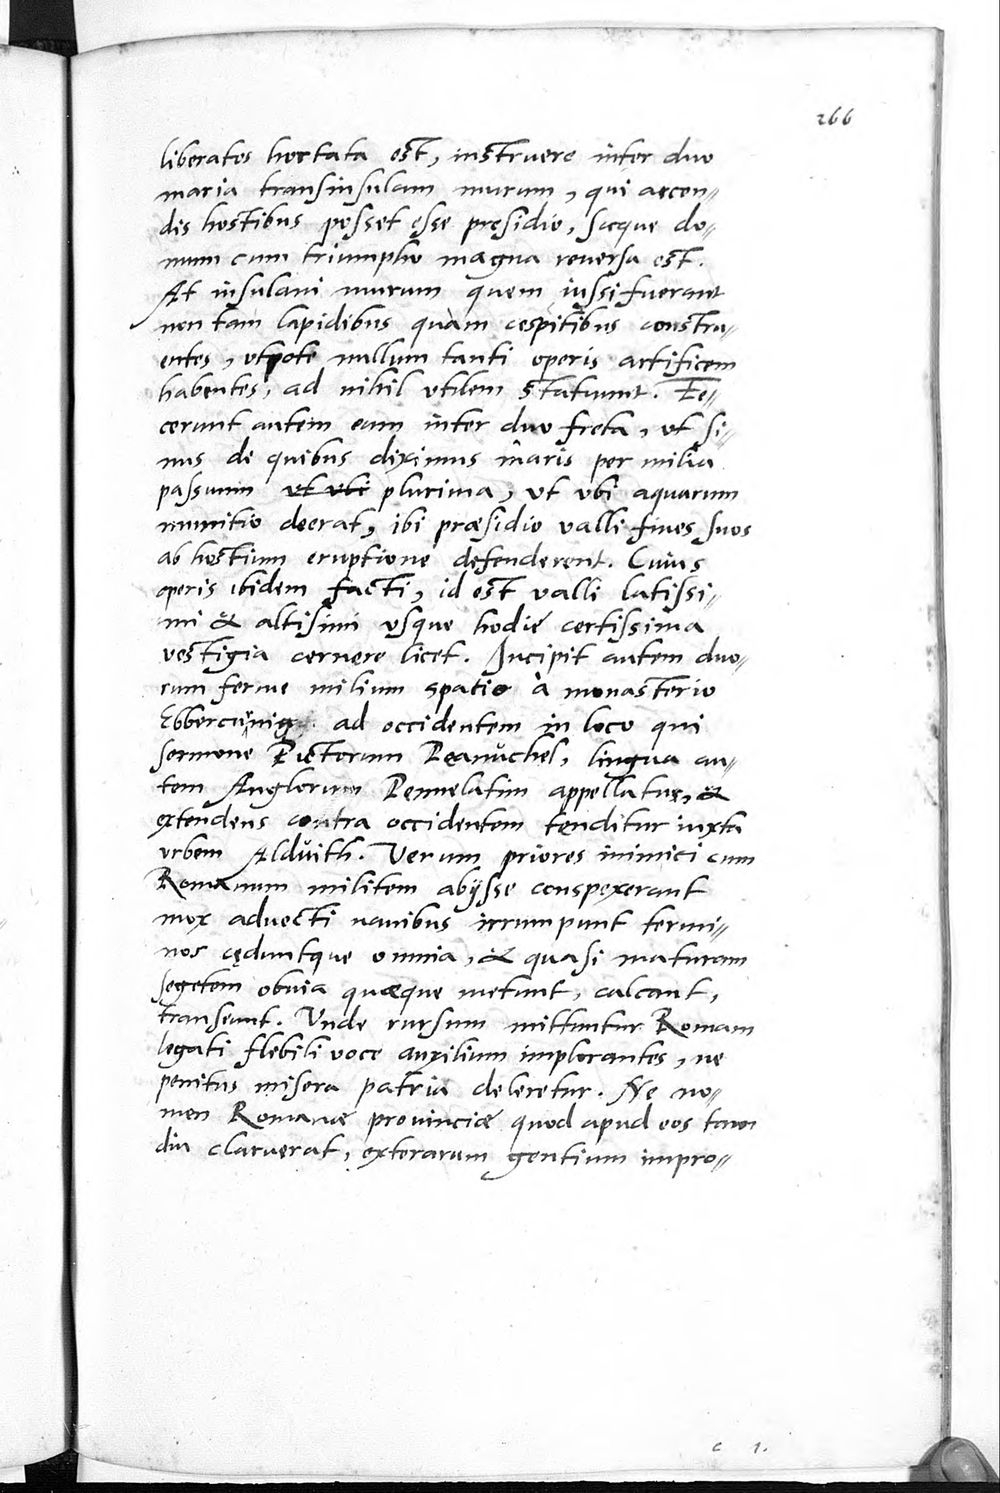 266
liberatos hortata est, instruere inter duo
maria transinsulam murum, qui arcen„
dis hostibus posset esse pręsidio, sicque do„
mum cum triumpho magna reuersa est.
At insulani murum quem iussi fuerant
non tam lapidibus quàm cespitibus constru„
entes, vtpote nullum tanti operis artificem
habentes, ad nihil vtilem statuunt. Fe„
cerunt autem eam inter duo freta, vt si„
nus de quibus diximus maris per milia
passuum vt vbi plurima, vt vbi aquarum
munitio deerat, ibi præsidio valli fines suos
ab hostium eruptione defenderent. Cuius
operis ibidem facti, id est valli latissi„
mi & altisimi vsque hodie certissima
vestigia cernere licet. Incipit autem duo„
rum ferme milium spatio à monasterio
Ebbercurnig ad occidentem in loco qui
sermone Pictorum Peanuchel, lingua au„
tem Anglorum Pennelatim appellatur, &
extendens contra occidentem tenditur iuxta
vrbem Alduith. Verum priores inimici cum
Romanum militem abijsse conspexerant
mox aduecti nauibus irrumpunt termi„
nos cęduntque omnia, & quasi maturam
segetem obuia quæque metunt, calcant,
transeunt. Vnde rursum mittuntur Romam
legati flebili voce auxilium implorantes, ne
penitus misera patria deleretur. Ne no„
men Romanæ prouinciæ quod apud eos tam
diu claruerat, exterarum gentium impro„
c 1.